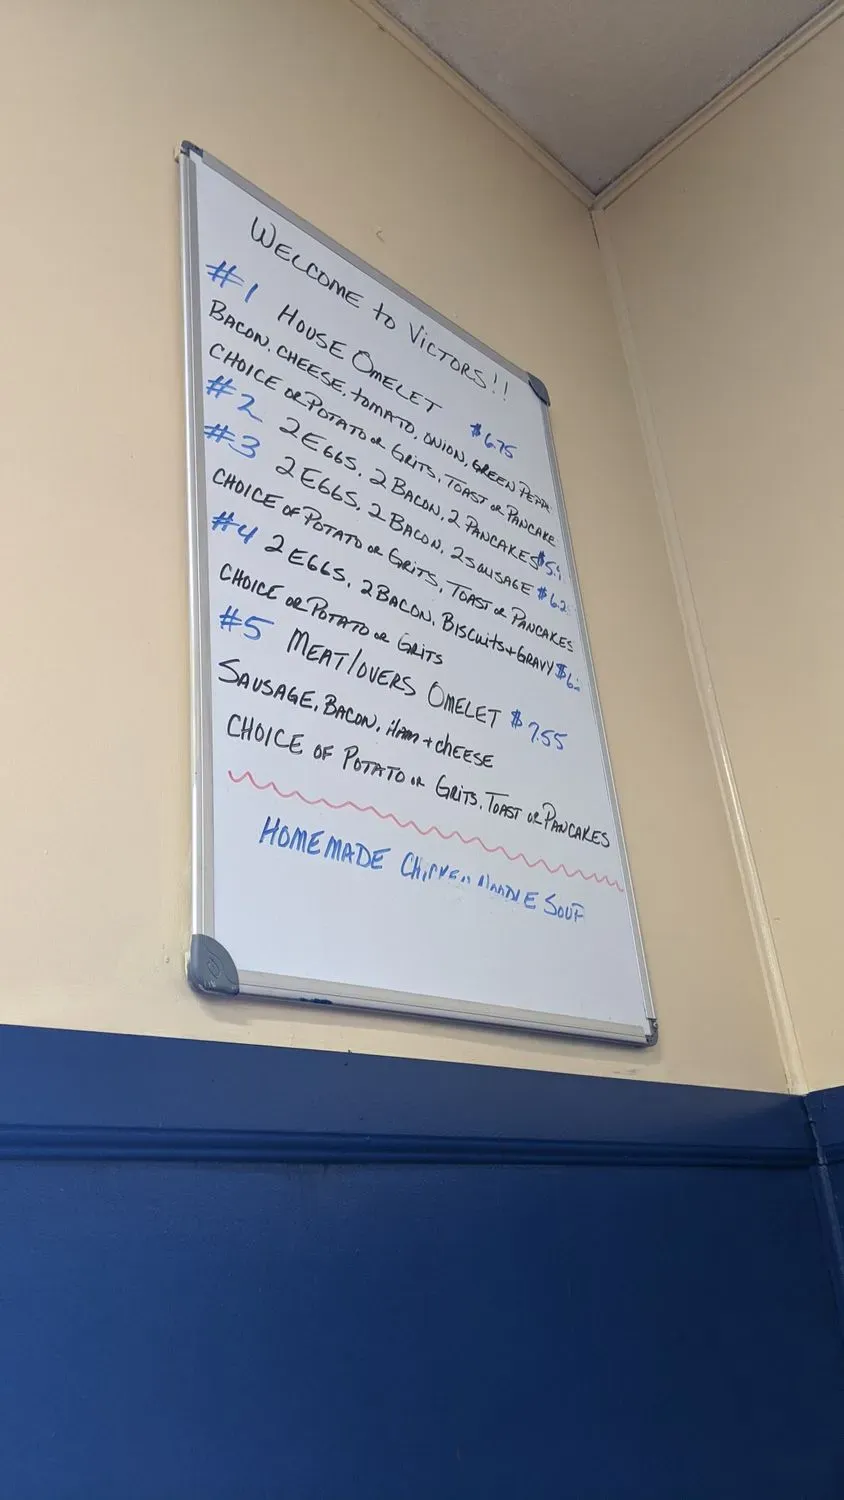 WELCOME to VICTORS!!
#1 HOUSE OMELET $6.75
BACON, CHEESE, tOMATO, ONION, GREEN PEPPA
CHOICE OR POTATO OR GRITS, TOAST OR PANCAKE
#2 2 EGGS, 2 BACON, 2 PANCAKES
#3 2 EGGS, 2 BACON, 2 SAUSAGE
CHOICE OF POTATO OR GRITS, TOAST OR PANCAKES
#4 2 EGGS, 2 BACON, BISCUITS + GRAVY
CHOICE OR POTATO OR GRITS
#5 MEAT/OVERS OMELET $7.55
SAUSAGE, BACON, HAM + CHEESE
CHOICE OF POTATO OR GRITS, TOAST OR PANCAKES
HOMEMADE CHICKEN NOODLE SOUP